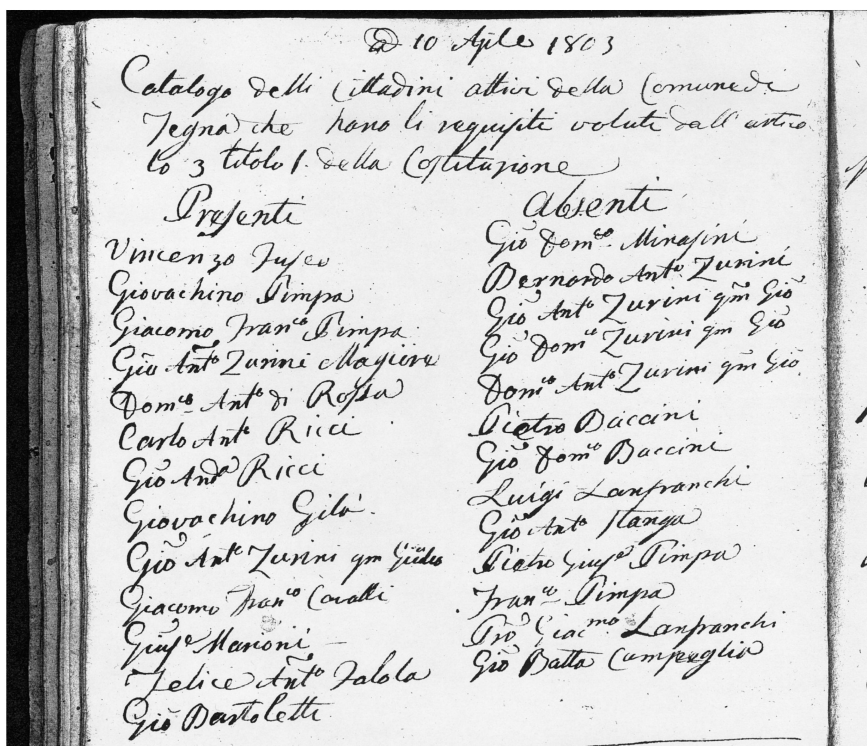 Ad 10 Aple 1803
Catalogo delli Cittadini attivi della Comune di
Tegna che hano li requisiti volute dall'artico
lo 3 titolo 1. della Costituzione
Presenti
Vincenzo Fuseo
Giovachino Pimpa
Giacomo Franco Pimpa
Gio Anto Zurini Magiore
Domco Anto di Rossa
Carlo Anto Ricci
Gio Anda Ricci
Giovachino Gilà
Gio Anto Zurini qm
Giacomo Franco Cavalli
Giuse Marioni
Felice Anto Zalola
Gio Bartoletti
Absenti
Gio Domco Mirasini
Bernardo Anto Zurini
Gio Anto Zurini qm Gio
Gio Domco Zurini qm Gio
Domco Anto Zurini qm Gio
Pietro Baccini
Gio Domco Baccini
Luigi Lanfranchi
Gio Anto Stanga
Pietro Giuse Pimpa
Franco Pimpa
Pro Giacmo Lanfranchi
Gio Batta Campeglio